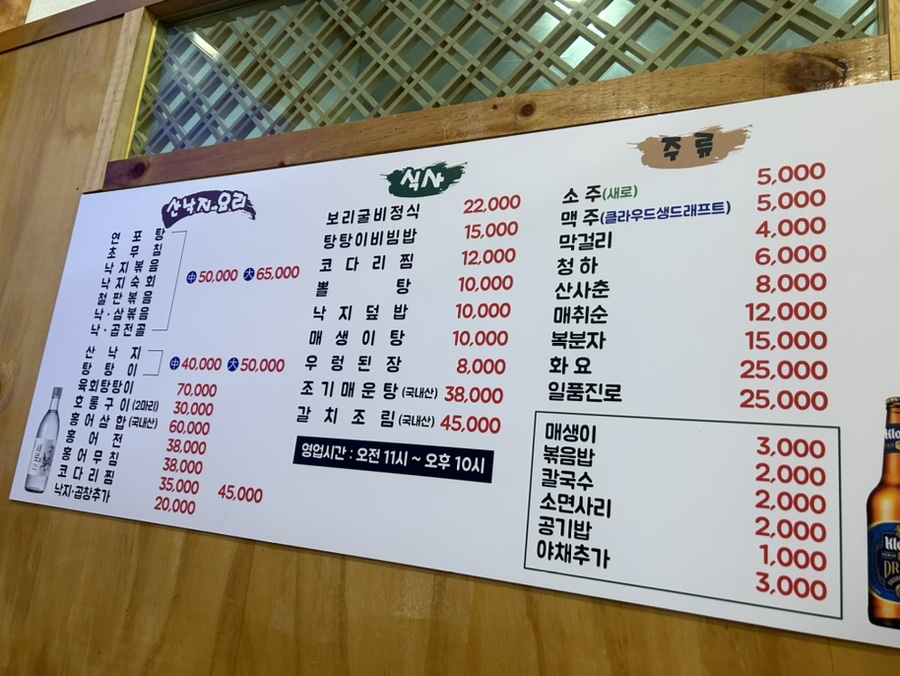 산낙지요리
연포탕
초무침
낙지볶음
낙지숙회
철판볶음
낙·삼볶음
낙·곱전골
中 50,000 大 65,000
산낙지
탕탕이
中 40,000 大 50,000
육회탕탕이 70,000
호롱구이(2마리) 30,000
홍어삼합(국내산) 60,000
홍어전 38,000
홍어무침 38,000
코다리찜 35,000 45,000
낙지·곱창추가 20,000
식사
보리굴비정식 22,000
탕탕이비빔밥 15,000
코다리찜 12,000
뽈탕 10,000
낙지덮밥 10,000
매생이탕 10,000
우렁된장 8,000
조기매운탕(국내산) 38,000
갈치조림(국내산) 45,000
영업시간 : 오전 11시 ~ 오후 10시
주류
소주(새로) 5,000
맥주(클라우드생드래프트) 5,000
막걸리 4,000
청하 6,000
산사춘 8,000
매취순 12,000
복분자 15,000
화요 25,000
일품진로 25,000
매생이 3,000
볶음밥 2,000
칼국수 2,000
소면사리 2,000
공기밥 1,000
야채추가 3,000